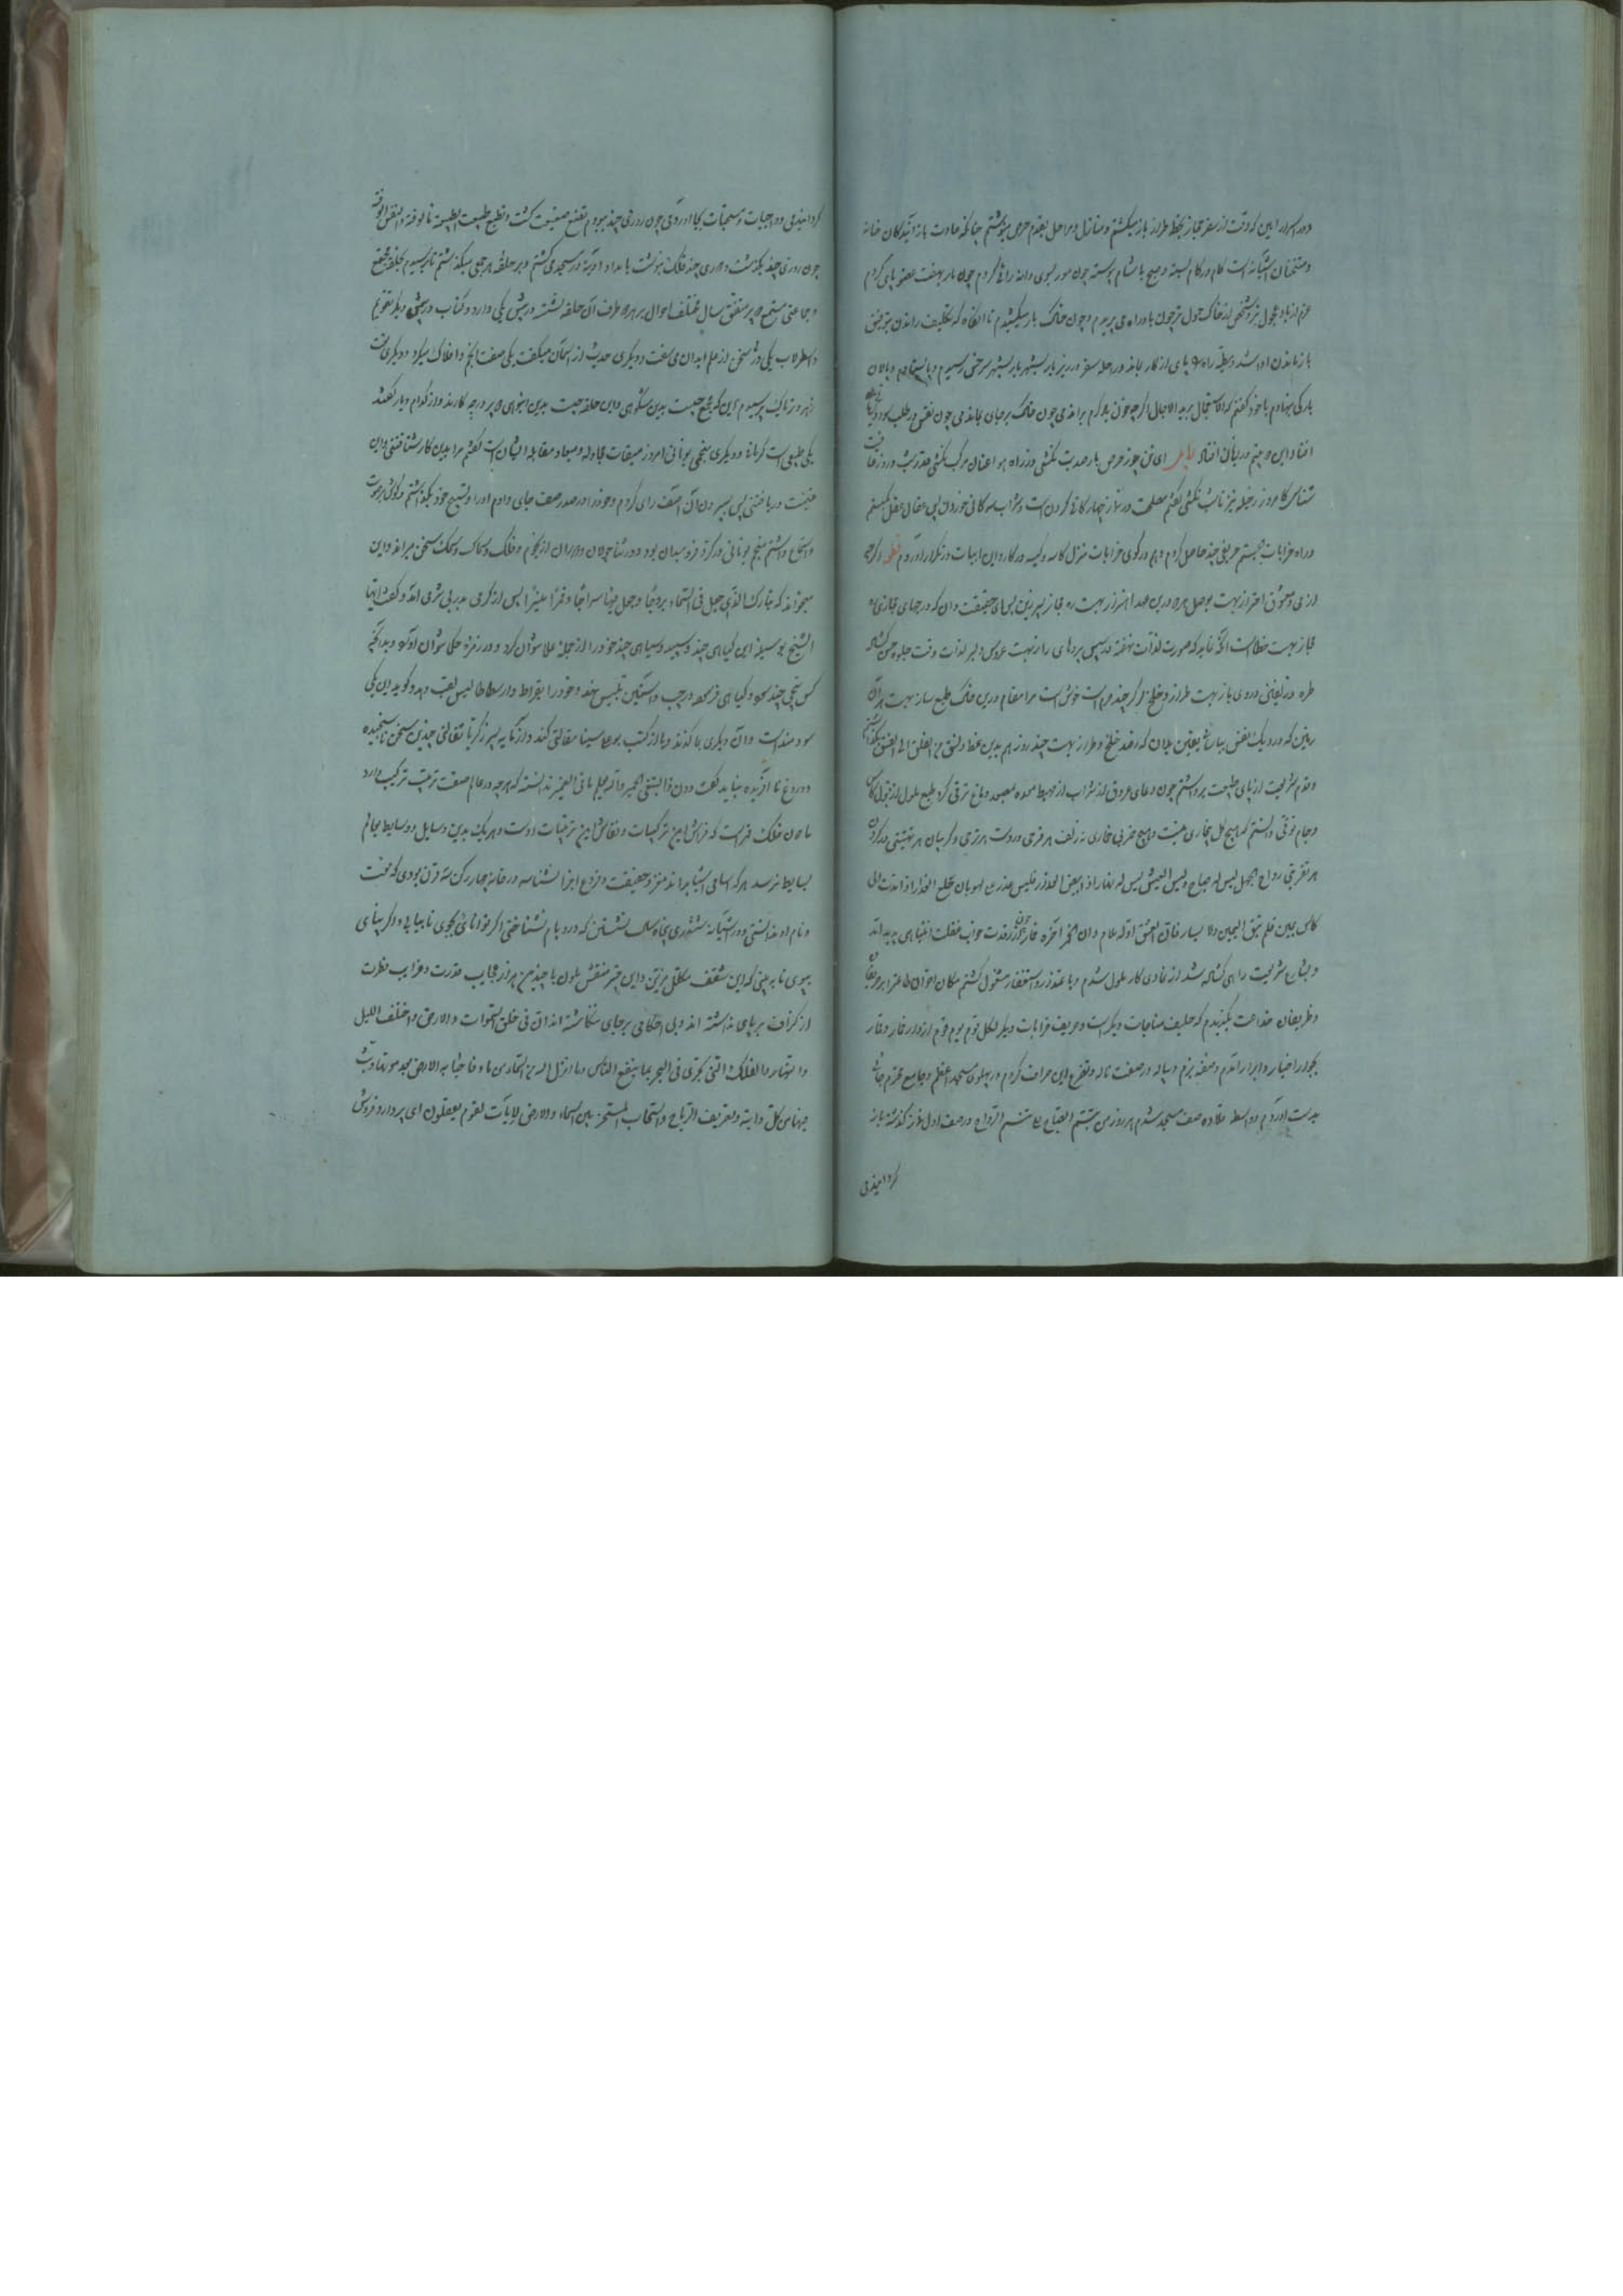 دور اسرار این که وقت از سفر حجاز بخطه طراز باز میگشتم و منازل و مراحل بقدم حرص مینوشتم چنانکه عادت باز آیندگان خانه
و مشتاقان آشیانه است کام در کام بسته و صبح با شام پیوسته چون مور بسوی دانه را هی کردم چون مار بهفت عضو پای کردم
عزم از باد عجول تر و شخص از خاک حمول تر چون باد راه می بریدم و چون خاک بار میکشیدم تا آنگاه که تکلیف راندن بتوقیف
باز ماندن ادا شد و پای از کار بماند و راحله سفر در ریز بار بشهر سرخس رسیدم و بالان
بارکی بنهادم با خود گفتم که الاستعجال برید الآجال اگر چه چون باد گرم براندمی چون خاک بر جای بماندمی چون نفس در طلب سود
افتاد این میم در زیان افتاد ای تن چو ز حرص بار صدبت نکشی در راه هوا عنان مرکب نکشی قدر شب و روز عافیت
شناس کامروز ز رجله نیز تا شب نکشی گفتم مصلحت در نماز چهارگانی کردن است و شراب سه گانی خوردن پس عقال عقل بگسستم
در راه خرابات بجستم حریفی چند حاصل کردم و هم در کوی خرابات منزل کاسه و کیسه در کار و این ابیات در تکرار آوردم قطعه گر چه
از می و معشوق احتراز بهست بوصل هر دو درین عهد اهتزاز بهست ره مجاز سپر زین پس بجای حقیقت وان که در جهای مجازی ه
مجاز بهست خطاست آنکه نماید که صورت لذات نهفته در پس پردهای راز بهست عروس دلبر لذات وقت جلوه حسن گشاده
طره در تیغی در وی باز بهست طراز و خلخ اگر چند خرم است خوش است مرا مقام درین خاک طبع ساز بهست هر آن
زمین که در و یک نفس بیاسایی یقین بدان که ز صد خلخ و طراز بهست چند روز هم بدین نمط و نسق من الفلق الی الغسق بگذاشتم
و قدم شریعت از پای طبیعت برداشتم چون دعای عروق از شراب از مهبط معده بمصعد دماغ ترقی کرد طبع ملول از قبول کاس
و جام توقی دانستم که هیچ گل بی خاری نیست و هیچ خمر بی خماری نه زلف هر فرحی در دست هر ترحی و گریبان هر تهنیتی در گردن
هر تعزیتی رواح الجهل لیس له صباح ولیس العیش لیس له نهار اذا بیض العذار فلیس عذر من لهو بان خلع العذار اذا بدت الی
کاس بیمین فلم تبق الیمین ولا یسار فان العشق اوله ملام وان الخمر آخره خمار چون از رقدت خواب غفلت انتباهی پدید آمد
و بشارع شریعت راهی گشاده شد از عادی کار ملول شدم و با عتذار و استغفار مشغول گشتم مکان اخوان
و ظریفان قناعت بگزیدم که حلیف مناجات دیگر است و حریف خرابات دیگر لکل قوم یوم و قوم از دار خمار و قمار
بجوار اخیار و ابرار آمدم و صفه بزم و پیاله در صفت ناله و تضرع این صرافت کردم در پهلوی مسجد اعظم و جامع محترم جائی
بدست آوردم و واسطه قلاده صف مسجد شدم هر روز من تبسم الصباح الی تنسم الرواح در صف اول نماز گذشته باز
گردانیدمی
گردانیدمی و واجبات و مستحبات بجا آوردمی چون روزی چند ببودم تصنع صنیعت گشت و تطبع طبیعت الطبیعة مألوفة والنفس الوفة
چون روزی چند بگذشت و دوری چند فلک بنوشت بامداد آدینه در مسجد می گشتم و بر حلقه هر جمعی میگذشتم تا برسیدم بحلقه مجتمع
و جماعتی مستمع دو پیر متفق سال مختلف احوال بر هر دو طرف آن حلقه نشسته در پیش یکی دارو و کتاب و در پیش دیگر تقویم
و اسطرلاب یکی ورق سخن از علم ابدان می سفت و دیگری حدیث از آسمان میگفت یکی صفت انجم و افلاک میکرد و دیگری نعت
زهر و تریاک پرسیدم این که مجمع چیست بدین شکوهی و این حلقه چیست بدین انبوهی و پیر در چه کارند و از کدام دیار گفتند
یکی طبیبی است کرمانی و دیگری منجمی یونانی امروز میقات مجادله و میعاد مقابله ایشان است گفتم مرا بدین کار شتافتنی و این
غنیمت دریافتنی پس سپر دندان آن صف رای کردم و خود را در صدر صف جای دادم اوراد و تسبیح خود بگذاشتم و گوش بر صوت
و استماع داشتم منجم یونانی در کر و فر میدان بود و در اثنای جولان و دوران از نجوم و فلک و سماک و سمک سخن میراند و این
میخواند که تبارک الذی جعل فی السماء بروجا و جعل فیها سراجا و قمرا منیرا پس از گرمی بدر بی شرمی آمد و گفت ایها
الشیخ بوسیلت این گیاهی چند سپید و سیاهی چند خود را از جمله علما نتوان کرد و در زمره حکما نتوان آورد و بدانکه
کس بیخی چند سوده و گیاهی فرسوده در جیب و آستین تلبیس نهد و خود را بقراط و ارسطاطالیس لقب دهد و گوید این یکی
سودمند است و آن دیگری با گزند و یا از کتب بوعلی سینا مقالتی کند و از آنکه پسر زکریا نقالتی چندین سخن ناسنجیده
و دروغ نا آفریده بباید گفت و ندانسته که هر چه در عالم صفت ترتیب ترکیب دارد
مادون فلک قمر است که فراش این ترکیبات و نقاش این ترتیبات اوست و هر یک بدین وسایل و وسایط بعالم
بسایط نرسد هر که اسامی اشیا بداند مغز و حقیقت و فروع اجزا بشناسد در خانه چهار رکن سه قرن بودی که نعت
و نام او ندانستی و در آشیانه ششدری پنجاه سال نشستی که در و بام نشناختی اگر توانائی بجوی تا بیابی و اگر بینای
بپوی تا ببینی که این سقف مکلل مزین و این چتر منقش ملون با چندین هزار عجایب قدرت و غرایب فطرت
از گزاف بر پای نداشته اند و بی احکامی بر جای نگاشته اند ان فی خلق السموات والارض واختلف اللیل
والنهار والفلک التی تجری فی البحر بما ینفع الناس وما انزل الله من السماء من ماء فاحیا به الارض بعد موتها وبث
فیها من کل دابة وتصریف الریاح والسحاب المسخر بین السماء والارض لایات لقوم یعقلون ای پیر دارو فروش